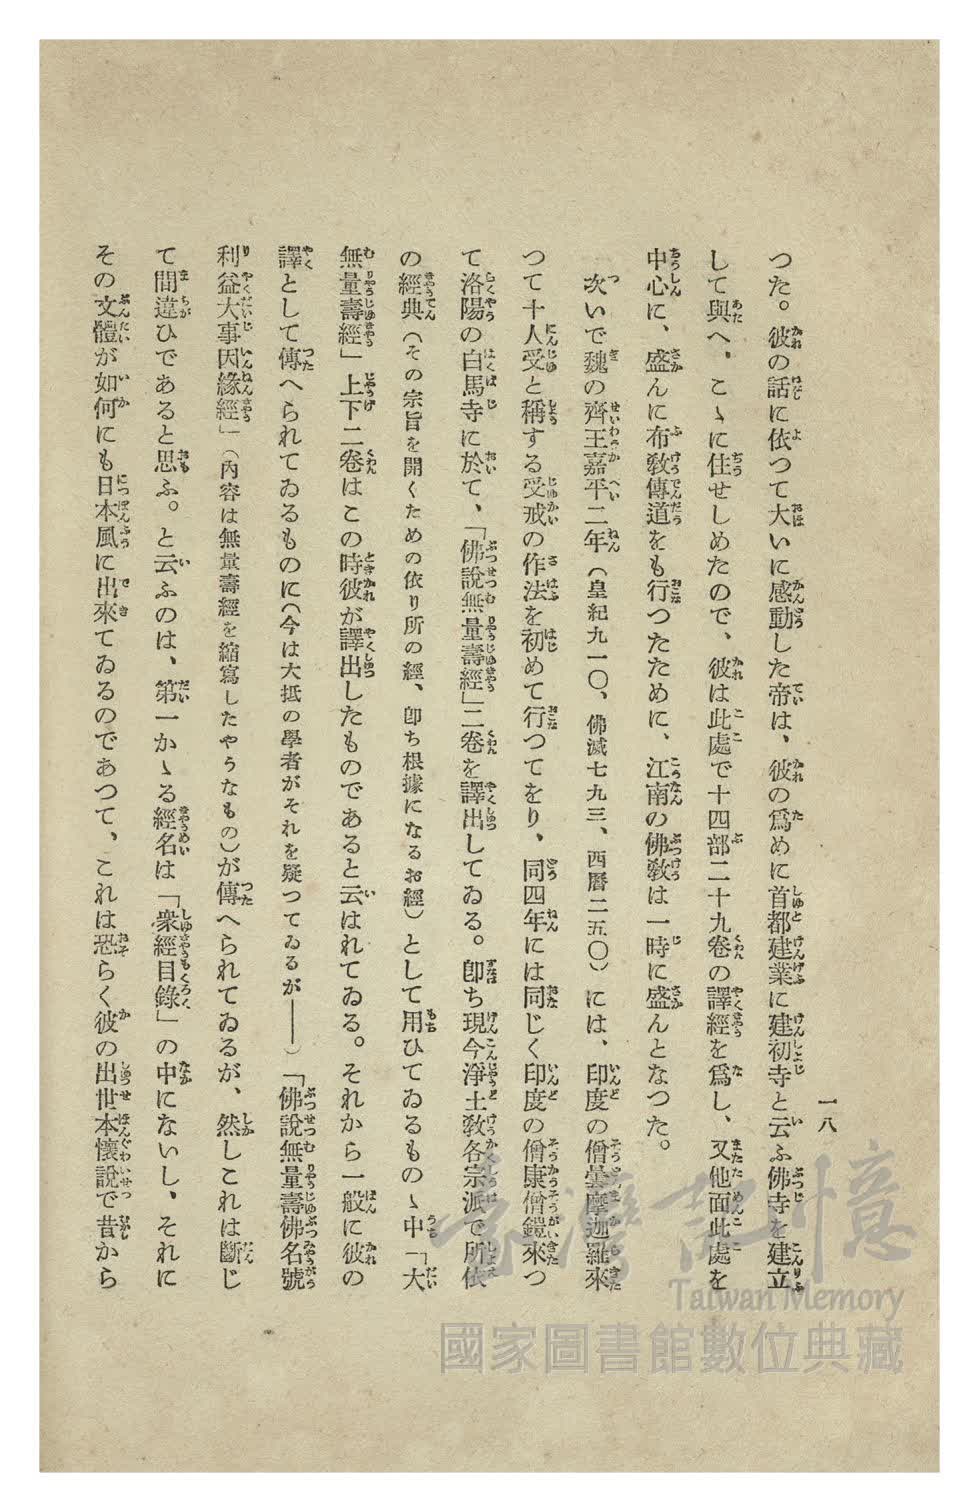 一八
つた。彼の話に依つて大いに感動した帝は、彼の爲めに首都建業に建初寺と云ふ佛寺を建立
して與へ、こゝに住せしめたので、彼は此處で十四部二十九卷の譯經を爲し、又他面此處を
中心に、盛んに布敎傳道をも行つたために、江南の佛敎は一時に盛んとなつた。
次いで魏の齊王嘉平二年（皇紀九一〇、佛滅七九三、西曆二五〇）には、印度の僧曇摩迦羅來
つて十人受と稱する受戒の作法を初めて行つてをり、同四年には同じく印度の僧康僧鎧來つ
て洛陽の白馬寺に於て、「佛說無量壽經」二卷を譯出してゐる。卽ち現今淨土敎各宗派で所依
の經典（その宗旨を開くための依り所の經、卽ち根據になるお經）として用ひてゐるものゝ中「大
無量壽經」上下二卷はこの時彼が譯出したものであると云はれてゐる。それから一般に彼の
譯として傳へられてゐるものに（今は大抵の學者がそれを疑つてゐるが――）「佛說無量壽佛名號
利益大事因緣經」（內容は無量壽經を縮寫したやうなもの）が傳へられてゐるが、然しこれは斷じ
て間違ひであると思ふ。と云ふのは、第一かゝる經名は「衆經目錄」の中にないし、それに
その文體が如何にも日本風に出來てゐるのであつて、これは恐らく彼の出世本懷說で昔から
臺灣記憶
Taiwan Memory
國家圖書館數位典藏